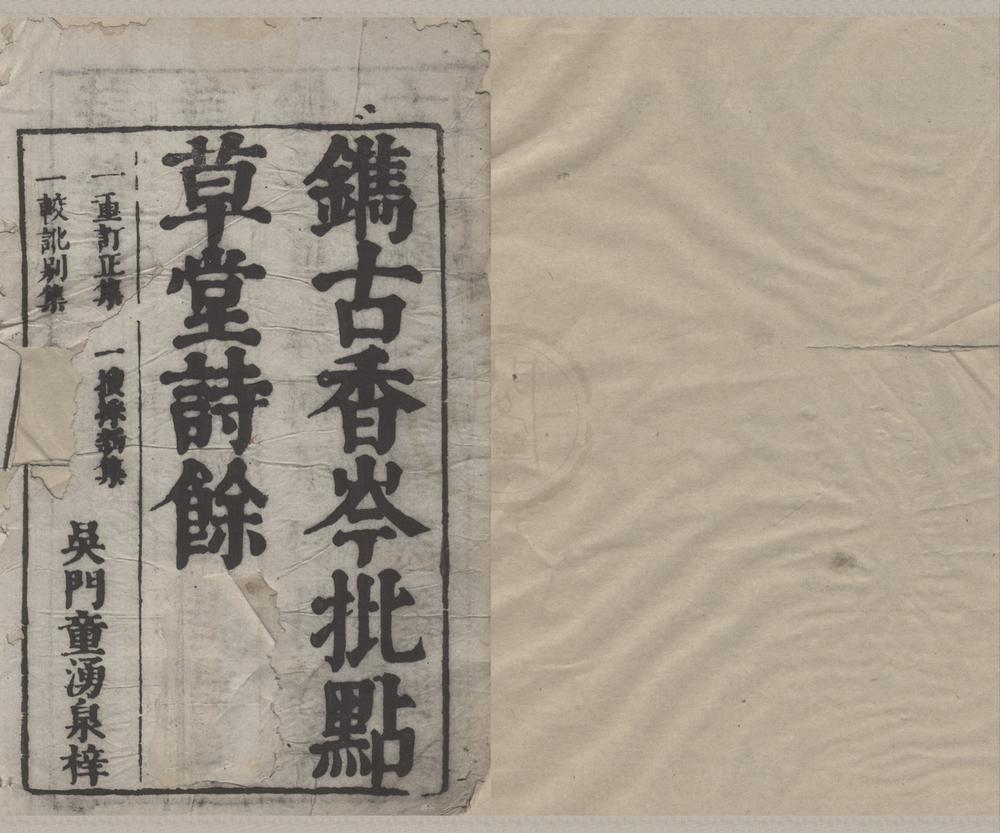 鐫古香岑批點
草堂詩餘
一重訂正集
一搜採新集
一較訛別集
吳門童湧泉梓